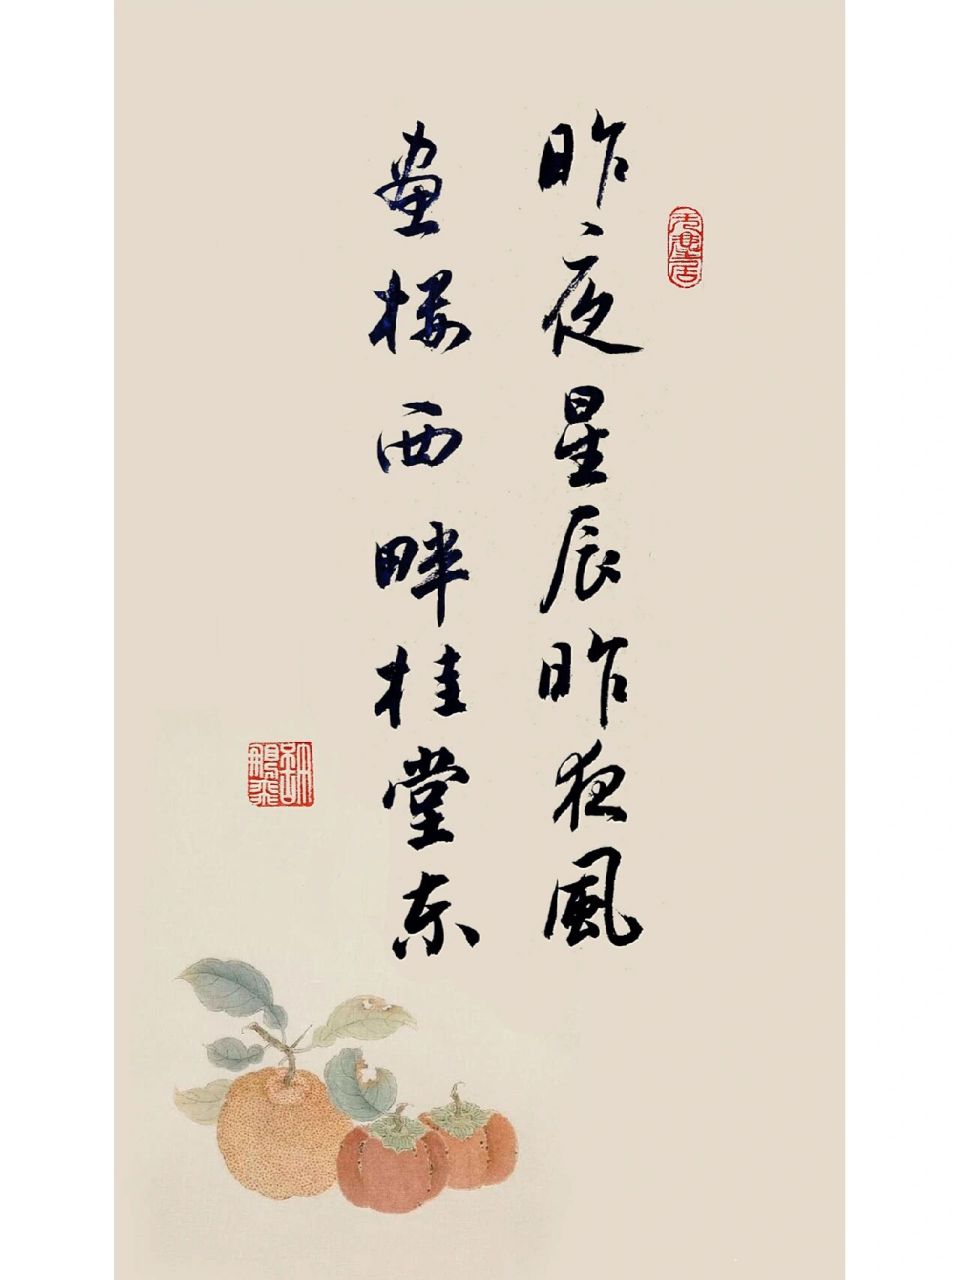 昨夜星辰昨夜風
畫樓西畔桂堂東